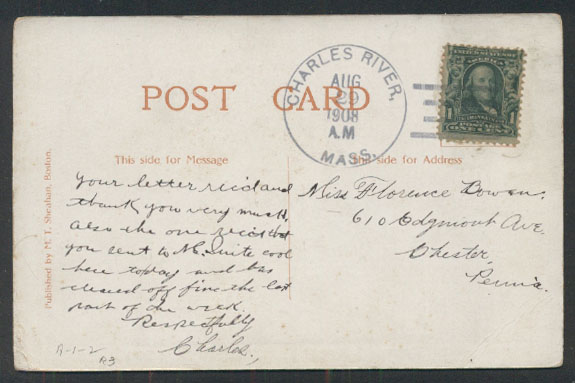 POST CARD
CHARLES RIVER,
AUG
29
1908
A.M
MASS.
1 1
ONE CENT
This side for Message
This side for Address
Published by M. T. Sheahan, Boston.
Your letter rec'd and
thank you very much.
Also the one
you sent to N.C. Quite cool
here today and has
cleared off fine the last
part of the week.
Respectfully
Charles.
Miss Florence Bowen.
610 Edgmont Ave.
Chester,
Penna.
A-1-2
R3